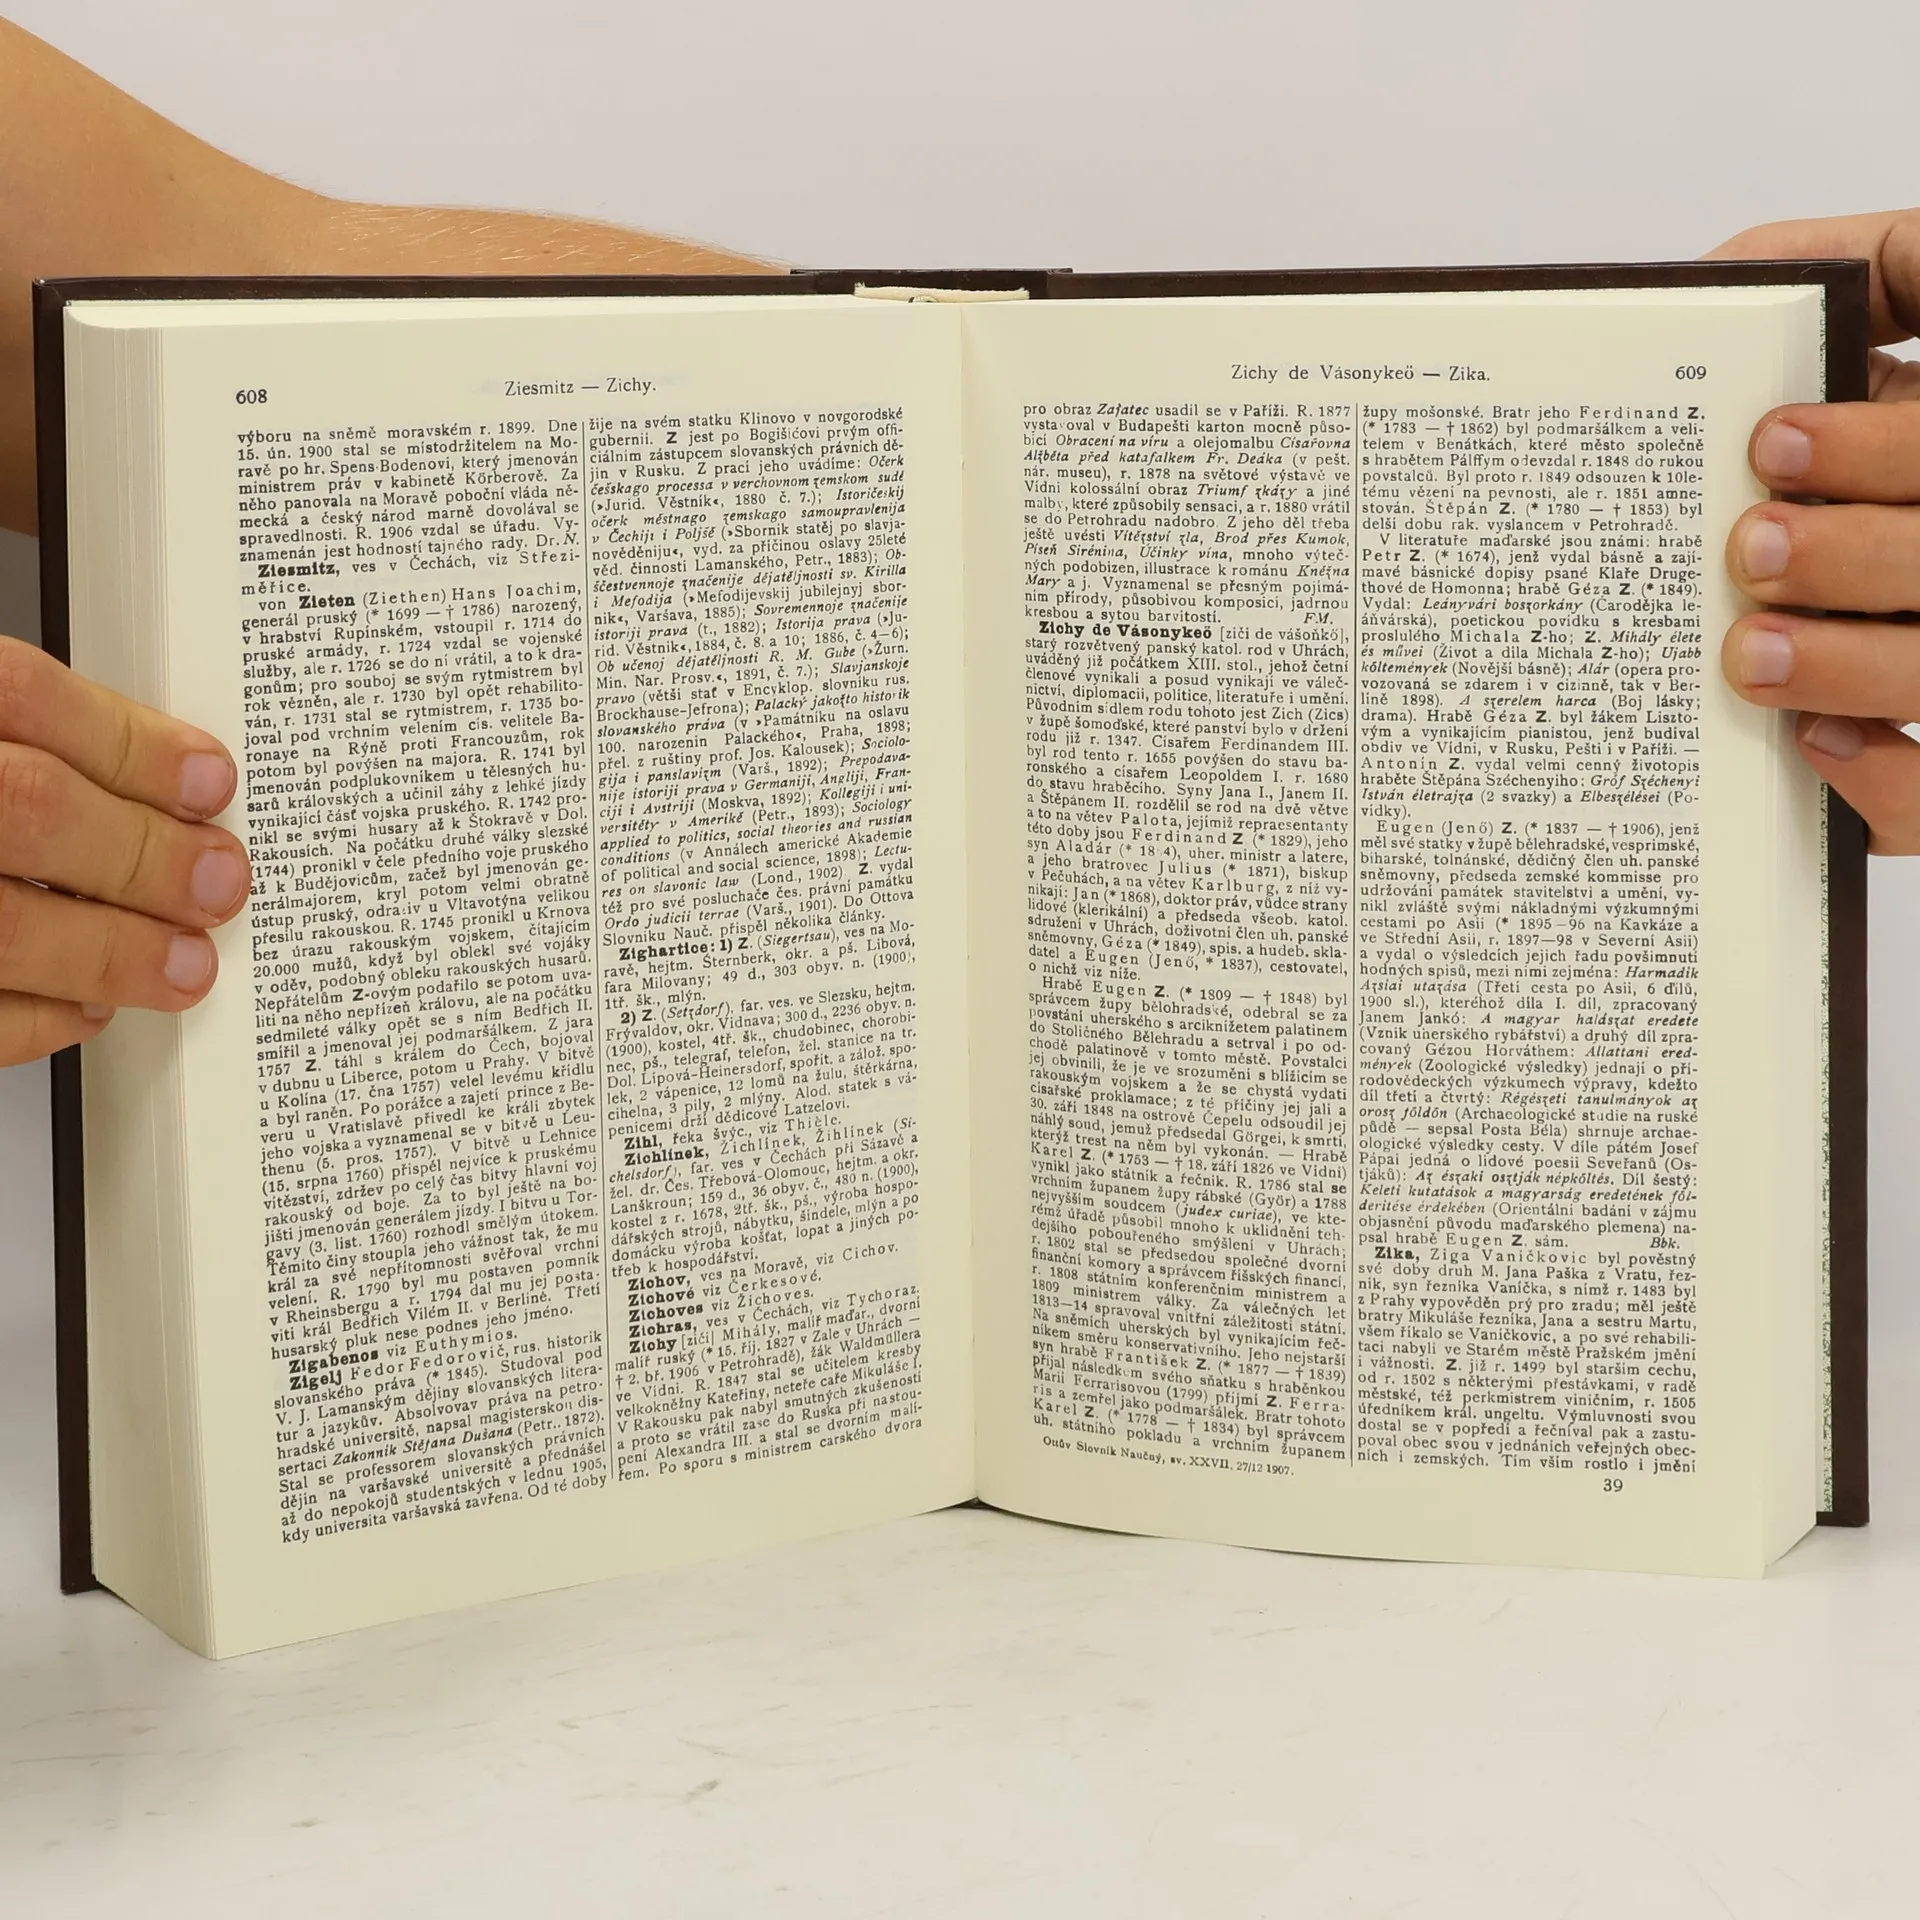 608
Ziesmitz — Zichy.
výboru na sněmě moravském r. 1899. Dne
15. ún. 1900 stal se místodržitelem na Mo-
ravě po hr. Spens-Bodenovi, který jmenován
ministrem práv v kabinetě Körberově. Za
něho panovala na Moravě poboční vláda ně-
mecká a český národ marně dovolával se
spravedlnosti. R. 1906 vzdal se úřadu. Vy-
znamenán jest hodností tajného rady. Dr. N.
Ziesmitz, ves v Čechách, viz Střezi-
měřice.
von Zieten (Ziethen) Hans Joachim,
generál pruský (* 1699 — † 1786) narozený,
v hrabství Rupinském, vstoupil r. 1714 do
pruské armády, r. 1724 vzdal se vojenské
služby, ale r. 1726 se do ní vrátil, a to k dra-
gonům; pro souboj se svým rytmistrem byl
rok vězněn, ale r. 1730 byl opět rehabilito-
ván, r. 1731 stal se rytmistrem, r. 1735 bo-
joval pod vrchním velením cís. velitele Ba-
ronaye na Rýně proti Francouzům, rok
potom byl povýšen na majora. R. 1741 byl
jmenován podplukovníkem u tělesných hu-
sarů královských a učinil záhy z lehké jízdy
vynikající část vojska pruského. R. 1742 pro-
nikl se svými husary až k Štokravě v Dol.
Rakousích. Na počátku druhé války slezské
(1744) pronikl v čele předního voje pruského
až k Budějovicům, začež byl jmenován ge-
nerálmajorem, kryl potom velmi obratně
ústup pruský, odraziv u Vltavotýna velikou
přesilu rakouskou. R. 1745 pronikl u Krnova
bez úrazu rakouským vojskem, čítajícím
20.000 mužů, když byl oblekl své vojáky
v oděv, podobný obleku rakouských husarů.
Nepřátelům Z-ovým podařilo se potom uva-
liti na něho nepřízeň královu, ale na počátku
sedmileté války opět se s ním Bedřich II.
smířil a jmenoval jej podmaršálkem. Z jara
1757 Z. táhl s králem do Čech, bojoval
v dubnu u Liberce, potom u Prahy. V bitvě
u Kolína (17. čna 1757) velel levému křídlu
a byl raněn. Po porážce a zajetí prince z Be-
veru u Vratislavě přivedl ke králi zbytek
jeho vojska a vyznamenal se v bitvě u Leu-
thenu (5. pros. 1757). V bitvě u Lehnice
(15. srpna 1760) přispěl nejvíce k pruskému
vítězství, zdržev po celý čas bitvy hlavní voj
rakouský od boje. Za to byl ještě na bo-
jišti jmenován generálem jízdy. I bitvu u Tor-
gavy (3. list. 1760) rozhodl smělým útokem.
Těmito činy stoupla jeho vážnost tak, že mu
král za své nepřítomnosti svěřoval vrchní
velení. R. 1790 byl mu postaven pomník
v Rheinsbergu a r. 1794 dal mu jej posta-
viti král Bedřich Vilém II. v Berlíně. Třetí
husarský pluk nese podnes jeho jméno.
Zigabenos viz Euthymios.
Zigelj Fedor Fedorovič, rus. historik
slovanského práva (* 1845). Studoval pod
V. J. Lamanským dějiny slovanských litera-
tur a jazykův. Absolvovav práva na petro-
hradské universitě, napsal magisterskou dis-
sertaci Zakonnik Stéjana Dušana (Petr., 1872).
Stal se professorem slovanských právních
dějin na varšavské universitě a přednášel
až do nepokojů studentských v lednu 1905,
kdy universita varšavská zavřena. Od té doby
žije na svém statku Klinovo v novgorodské
gubernii. Z jest po Bogišićovi prvým offi-
ciálním zástupcem slovanských právních dě-
jin v Rusku. Z prací jeho uvádíme: Očerk
češskago processa v verchovnom zemskom sudě
(»Jurid. Věstník«, 1880 č. 7.); Istoričeskij
očerk městnago zemskago samoupravlenija
v Čechiji i Poljšě (»Sbornik statěj po slavja-
nověděniju«, vyd. za příčinou oslavy 25leté
věd. činnosti Lamanského, Petr., 1883); Ob-
ščestvennoje značenije dějatěljnosti sv. Kirilla
i Mefodija (»Mefodijevskij jubilejnyj sbor-
nik«, Varšava, 1885); Sovremennoje značenije
istoriji prava (t., 1882); Istorija prava (»Ju-
rid. Věstník«, 1884, č. 8. a 10; 1886, č. 4—6);
Ob učenoj dějatěljnosti R. M. Gube (»Žurn.
Min. Nar. Prosv.«, 1891, č. 7.); Slavjanskoje
pravo (větší stať v Encyklop. slovníku rus.
Brockhause-Jefrona); Palacký jakožto historik
slovanského práva (v »Památníku na oslavu
100. narozenin Palackého«, Praha, 1898;
přel. z ruštiny prof. Jos. Kalousek); Sociolo-
gija i panslavizm (Varš., 1892); Prepodava-
nije istoriji prava v Germaniji, Angliji, Fran-
ciji i Avstriji (Moskva, 1892); Kollegiji i uni-
versitěty v Amerikě (Petr., 1893); Sociology
applied to politics, social theories and russian
conditions (v Annálech americké Akademie
of political and social science, 1898); Lectu-
res on slavonic law (Lond., 1902) Z. vydal
též pro své posluchače čes. právní památku
Ordo judicii terrae (Varš., 1901). Do Ottova
Slovníku Nauč. přispěl několika články.
Zighartice: 1) Z. (Siegertsau), ves na Mo-
ravě, hejtm. Šternberk, okr. a pš. Libová,
fara Milovany; 49 d., 303 obyv. n. (1900),
1tř. šk., mlýn.
2) Z. (Setzdorf), far. ves. ve Slezsku, hejtm.
Frývaldov, okr. Vidnava; 300 d., 2236 obyv. n.
(1900), kostel, 4tř. šk., chudobinec, chorobi-
nec, pš., telegraf, telefon, žel. stanice na tr.
Dol. Lípová-Heinersdorf, spořit. a zálož. spo-
lek, 2 vápenice, 12 lomů na žulu, štěrkárna,
cihelna, 3 pily, 2 mlýny. Alod. statek s vá-
penicemi drží dědicové Latzelovi.
Zihl, řeka švýc., viz Thièle.
Zichlínek, Žichlínek, Žihlínek (Si-
chelsdorf), far. ves v Čechách při Sázavě a
žel. dr. Čes. Třebová-Olomouc, hejtm. a okr.
Lanškroun; 159 d., 36 obyv. č., 480 n. (1900),
kostel z r. 1678, 2tř. šk., pš., výroba hospo-
dářských strojů, nábytku, šindele, mlýn a po
domácku výroba košťat, lopat a jiných po-
třeb k hospodářství.
Zichov, ves na Moravě, viz Cichov.
Zichové viz Čerkesové.
Zichoves viz Žichoves.
Zichras, ves v Čechách, viz Tychoraz.
Zichy [zíči] Mihály, malíř maďar., dvorní
malíř ruský (* 15. říj. 1827 v Zale v Uhrách —
† 2. bř. 1906 v Petrohradě), žák Waldmüllera
ve Vídni. R. 1847 stal se učitelem kresby
velkokněžny Kateřiny, neteře caře Mikuláše I.
V Rakousku pak nabyl smutných zkušeností
a proto se vrátil zase do Ruska při nastou-
pení Alexandra III. a stal se dvorním malí-
řem. Po sporu s ministrem carského dvora
Zichy de Vásonykeö — Zika.
609
pro obraz Zajatec usadil se v Paříži. R. 1877
vystavoval v Budapešti karton mocně půso-
bící Obracení na víru a olejomalbu Císařovna
Alžběta před katafalkem Fr. Deáka (v pešt.
nár. museu), r. 1878 na světové výstavě ve
Vídni kolossální obraz Triumf zkázy a jiné
malby, které způsobily sensaci, a r. 1880 vrátil
se do Petrohradu nadobro. Z jeho děl třeba
ještě uvésti Vítězství zla, Brod přes Kumok,
Píseň Sirénina, Účinky vína, mnoho výteč-
ných podobizen, illustrace k románu Kněžna
Mary a j. Vyznamenal se přesným pojímá-
ním přírody, působivou komposicí, jadrnou
kresbou a sytou barvitostí. F. M.
Zichy de Vásonykeö [ziči de vášoňkö],
starý rozvětvený panský katol. rod v Uhrách,
uváděný již počátkem XIII. stol., jehož četní
členové vynikali a posud vynikají ve váleč-
nictví, diplomacii, politice, literatuře i umění.
Původním sídlem rodu tohoto jest Zich (Zics)
v župě šomodské, které panství bylo v držení
rodu již r. 1347. Císařem Ferdinandem III.
byl rod tento r. 1655 povýšen do stavu ba-
ronského a císařem Leopoldem I. r. 1680
do stavu hraběcího. Syny Jana I., Janem II.
a Štěpánem II. rozdělil se rod na dvě větve
a to na větev Palota, jejímiž repraesentanty
této doby jsou Ferdinand Z (* 1829), jeho
syn Aladár (* 18 4), uher. ministr a latere,
a jeho bratrovec Julius (* 1871), biskup
v Pečuhách, a na větev Karlburg, z níž vy-
nikají: Jan (* 1868), doktor práv, vůdce strany
lidové (klerikální) a předseda všeob. katol.
sdružení v Uhrách, doživotní člen uh. panské
sněmovny, Géza (* 1849), spis. a hudeb. skla-
datel a Eugen (Jenő, * 1837), cestovatel,
o nichž viz níže.
Hrabě Eugen Z. (* 1809 — † 1848) byl
správcem župy bělohradské, odebral se za
povstání uherského s arciknížetem palatinem
do Stoličného Bělehradu a setrval i po od-
chodě palatinově v tomto městě. Povstalci
jej obvinili, že je ve srozumění s blížícím se
rakouským vojskem a že se chystá vydati
císařské proklamace; z té příčiny jej jali a
30. září 1848 na ostrově Čepelu odsoudil jej
náhlý soud, jemuž předsedal Görgei, k smrti,
kterýž trest na něm byl vykonán. — Hrabě
Karel Z. (* 1753 — † 18. září 1826 ve Vídni)
vynikl jako státník a řečník. R. 1786 stal se
vrchním županem župy rábské (Györ) a 1788
nejvyšším soudcem (judex curiae), ve kte-
rémž úřadě působil mnoho k uklidnění teh-
dejšího pobouřeného smýšlení v Uhrách;
r. 1802 stal se předsedou společné dvorní
finanční komory a správcem říšských financí,
r. 1808 státním konferenčním ministrem a
1809 ministrem války. Za válečných let
1813—14 spravoval vnitřní záležitosti státní.
Na sněmích uherských byl vynikajícím řeč-
níkem směru konservativního. Jeho nejstarší
syn hrabě František Z. (* 1877 — † 1839)
přijal následkem svého sňatku s hraběnkou
Marií Ferrarisovou (1799) přijmí Z. Ferra-
ris a zemřel jako podmaršálek. Bratr tohoto
Karel Z. (* 1778 — † 1834) byl správcem
uh. státního pokladu a vrchním županem
Ottův Slovník Naučný, sv. XXVII, 27/12 1907.
župy mošonské. Bratr jeho Ferdinand Z.
(* 1783 — † 1862) byl podmaršálkem a veli-
telem v Benátkách, které město společně
s hrabětem Pálffym odevzdal r. 1848 do rukou
povstalců. Byl proto r. 1849 odsouzen k 10le-
tému vězení na pevnosti, ale r. 1851 amne-
stován. Štěpán Z. (* 1780 — † 1853) byl
delší dobu rak. vyslancem v Petrohradě.
V literatuře maďarské jsou známi: hrabě
Petr Z. (* 1674), jenž vydal básně a zají-
mavé básnické dopisy psané Klaře Druge-
thové de Homonna; hrabě Géza Z. (* 1849).
Vydal: Leányvári boszorkány (Čarodějka le-
áňvárská), poetickou povídku s kresbami
proslulého Michala Z-ho; Z. Mihály élete
és művei (Život a díla Michala Z-ho); Ujabb
költemények (Novější básně); Alár (opera pro-
vozovaná se zdarem i v cizině, tak v Ber-
líně 1898). A szerelem harca (Boj lásky;
drama). Hrabě Géza Z. byl žákem Liszto-
vým a vynikajícím pianistou, jenž budíval
obdiv ve Vídni, v Rusku, Pešti i v Paříži. —
Antonín Z. vydal velmi cenný životopis
hraběte Štěpána Széchenyiho: Gróf Széchenyi
István életrajza (2 svazky) a Elbeszélései (Po-
vídky).
Eugen (Jenő) Z. (* 1837 — † 1906), jenž
měl své statky v župě bělehradské, vesprimské,
biharské, tolnánské, dědičný člen uh. panské
sněmovny, předseda zemské kommisse pro
udržování památek stavitelství a umění, vy-
nikl zvláště svými nákladnými výzkumnými
cestami po Asii (* 1895–96 na Kavkáze a
ve Střední Asii, r. 1897—98 v Severní Asii)
a vydal o výsledcích jejich řadu povšimnutí
hodných spisů, mezi nimi zejména: Harmadik
Ázsiai utazása (Třetí cesta po Asii, 6 dílů,
1900 sl.), kteréhož díla I. díl, zpracovaný
Janem Jankó: A magyar halászat eredete
(Vznik uherského rybářství) a druhý díl zpra-
covaný Gézou Horváthem: Állattani ered-
mények (Zoologické výsledky) jednají o pří-
rodovědeckých výzkumech výpravy, kdežto
díl třetí a čtvrtý: Régészeti tanulmányok az
orosz földön (Archaeologické studie na ruské
půdě — sepsal Posta Béla) shrnuje archae-
ologické výsledky cesty. V díle pátém Josef
Pápai jedná o lidové poesii Seveřanů (Os-
tjáků): Az északi osztják népköltés. Díl šestý:
Keleti kutatások a magyarság eredetének föl-
derítése érdekében (Orientální badání v zájmu
objasnění původu maďarského plemena) na-
psal hrabě Eugen Z. sám. Bbk.
Zika, Ziga Vaníčkovic byl pověstný
své doby druh M. Jana Paška z Vratu, řez-
ník, syn řezníka Vaníčka, s nímž r. 1483 byl
z Prahy vypověděn prý pro zradu; měl ještě
bratry Mikuláše řezníka, Jana a sestru Martu,
všem říkalo se Vaníčkovic, a po své rehabili-
taci nabyli ve Starém městě Pražském jmění
i vážnosti. Z. již r. 1499 byl starším cechu,
od r. 1502 s některými přestávkami, v radě
městské, též perkmistrem viničním, r. 1505
úředníkem král. ungeltu. Výmluvností svou
dostal se v popředí a řečníval pak a zastu-
poval obec svou v jednáních veřejných obec-
ních i zemských. Tím vším rostlo i jmění
39